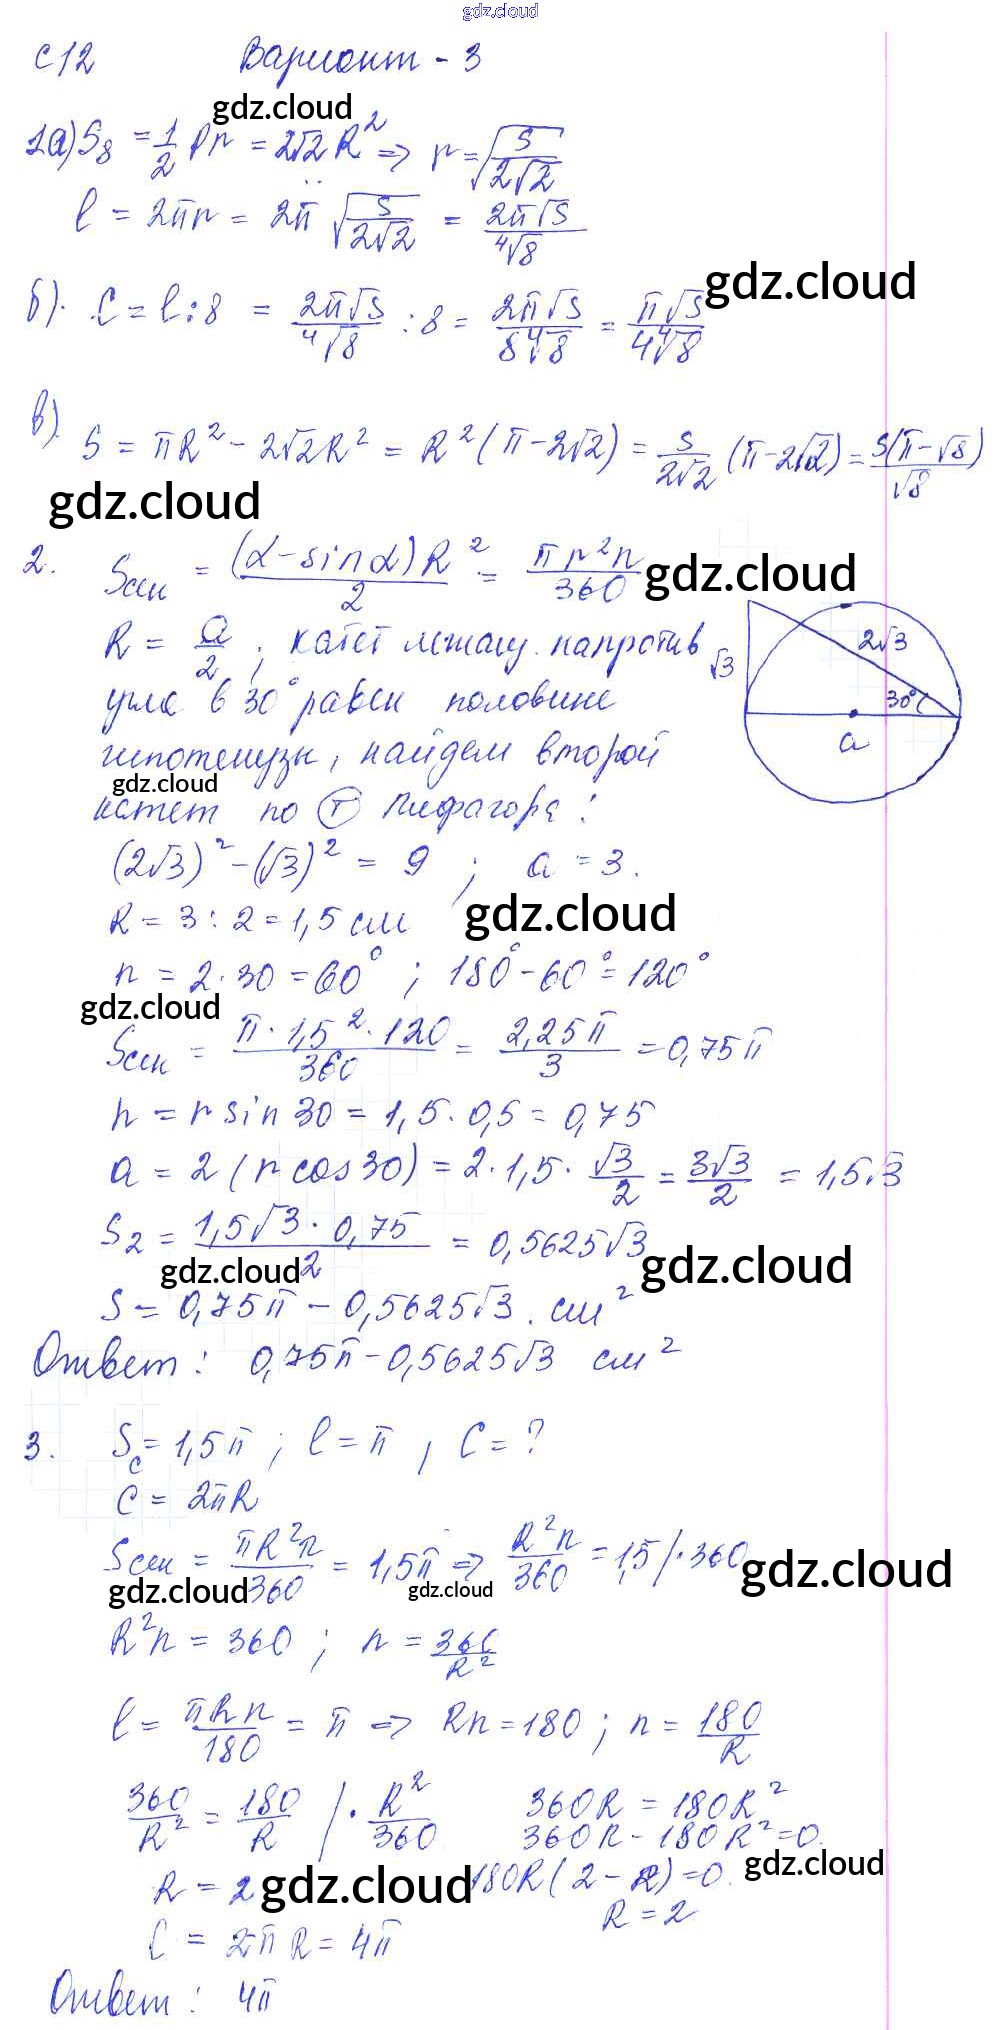 gdz.cloud
С12 Вариант - 3
gdz.cloud
1а) S₈ = 1/2 Pr = 2√2 R² => r = √(S/(2√2))
l = 2πr = 2π √(S/(2√2)) = 2π√S/⁴√8
gdz.cloud
б). C = l : 8 = 2π√S/⁴√8 : 8 = 2π√S/8⁴√8 = π√S/4⁴√8
в). S = πR² - 2√2R² = R²(π - 2√2) = S/2√2 (π - 2√2) = S(π - √8)/√8
gdz.cloud
2. Sсек = (α - sin α)R²/2 = πr²n/360
gdz.cloud
R = a/2 ; катет лежащ. напротив
угла в 30° равен половине
гипотенузы, найдем второй
gdz.cloud
катет по Т Пифагора:
√3 2√3 30° a
(2√3)² - (√3)² = 9 ; a = 3.
R = 3 : 2 = 1,5 см
gdz.cloud
n = 2 · 30 = 60° ; 180° - 60° = 120°
gdz.cloud
Sсек = π · 1,5² · 120/360 = 2,25π/3 = 0,75π
h = r sin 30 = 1,5 · 0,5 = 0,75
a = 2 (r cos 30) = 2 · 1,5 · √3/2 = 3√3/2 = 1,5√3
S₂ = 1,5√3 · 0,75/2 = 0,5625√3
gdz.cloud
gdz.cloud
S = 0,75π - 0,5625√3 . см²
Ответ: 0,75π - 0,5625√3 см²
3. Sс = 1,5π ; l = π , C = ?
C = 2πR
Sсек = πR²n/360 = 1,5π => R²n/360 = 1,5 / · 360
gdz.cloud
gdz.cloud
gdz.cloud
R²n = 360 ; n = 360/R²
l = πRn/180 = π => Rn = 180 ; n = 180/R
360/R² = 180/R / · R²/360
360R = 180R²
360R - 180R² = 0.
gdz.cloud
R = 2
180R(2 - R) = 0.
gdz.cloud
R = 2
C = 2πR = 4π
Ответ: 4π